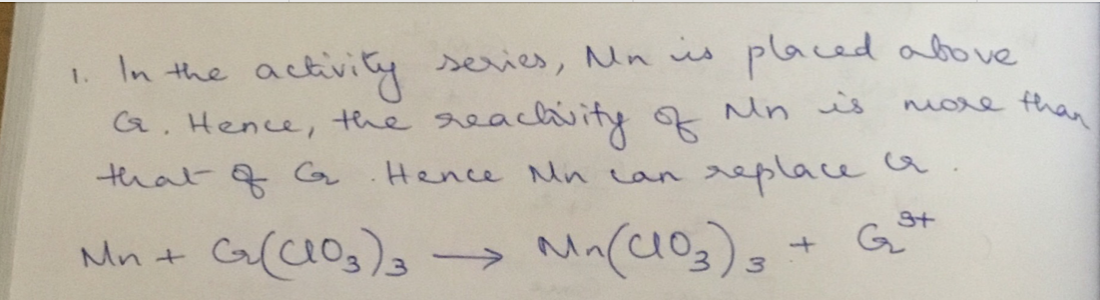 1. In the activity series, Mn is placed above
Cr. Hence, the reactivity of Mn is more than
that of Cr. Hence Mn can replace Cr.
Mn + Cr(ClO₃)₃ → Mn(ClO₃)₃ + Cr³⁺